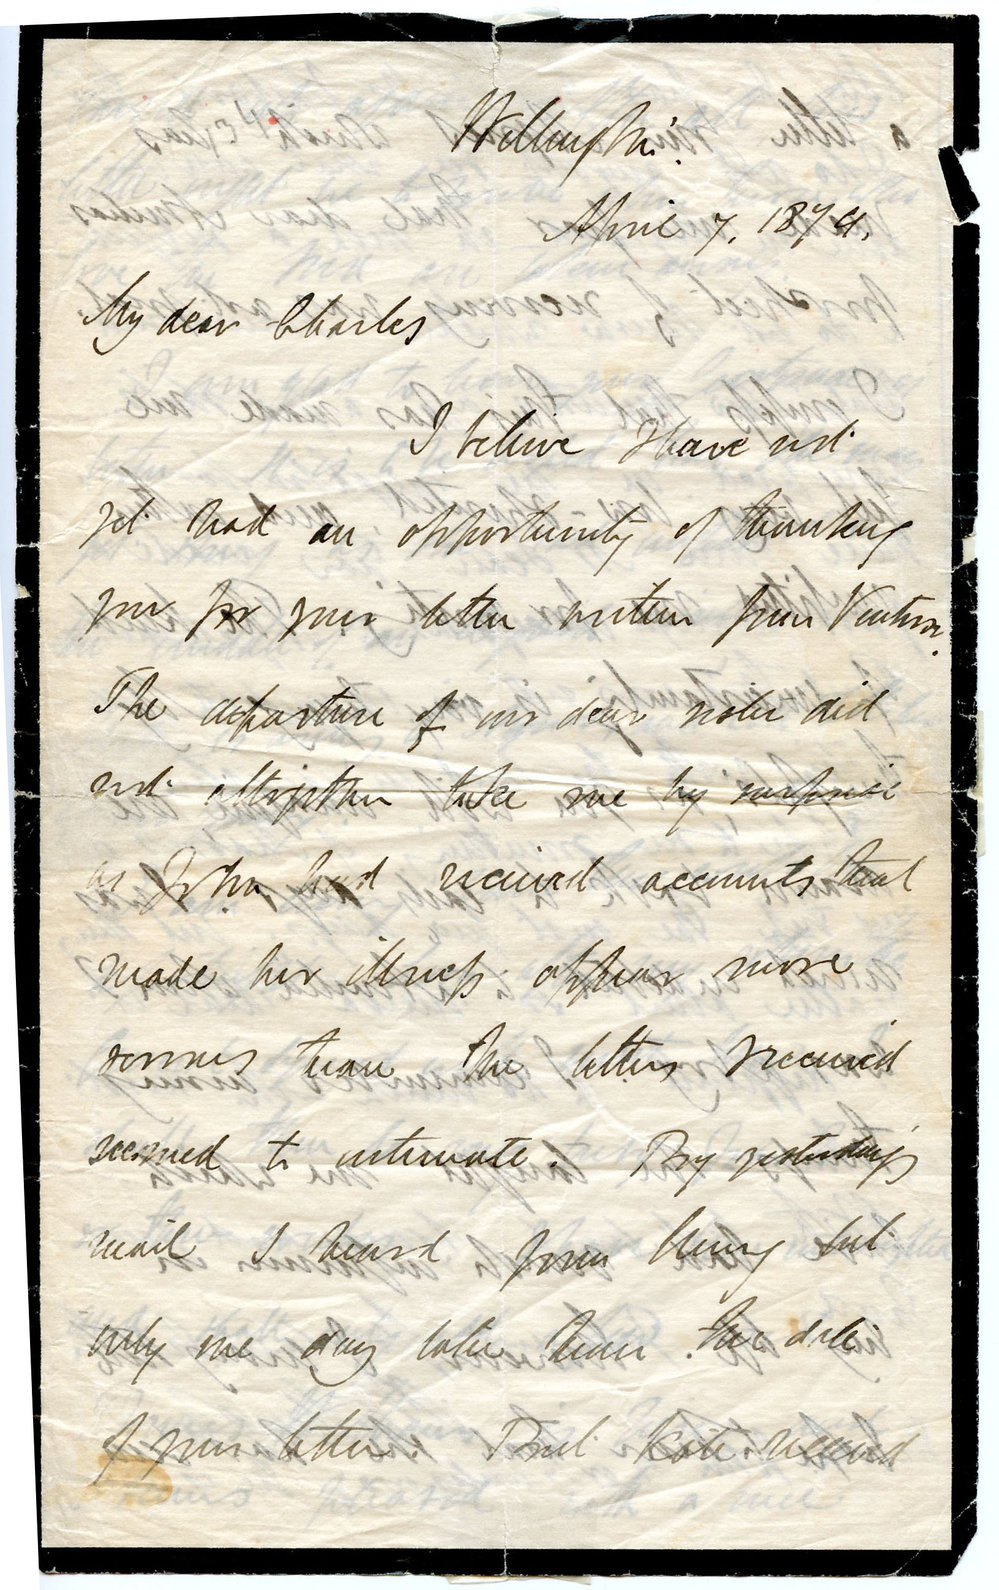 Wellington.
April 7, 1874.
My dear Charles
I believe I have not
yet had an opportunity of thanking
you for your letter written from Ventnor.
The departure of our dear sister did
not altogether take me by surprise
as John had received accounts that
made her illness appear more
serious than the letters received
seemed to intimate. By yesterday's
mail I heard from Henry but
only one day later than the date
of your letter. But Kate received